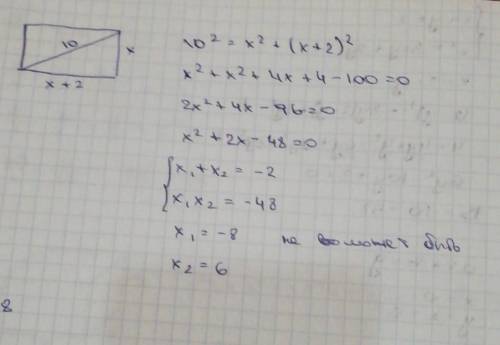 10
x
x + 2
10² = x² + (x+2)²
x² + x² + 4x + 4 - 100 = 0
2x² + 4x - 96 = 0
x² + 2x - 48 = 0
{ x₁ + x₂ = -2
x₁x₂ = -48
x₁ = -8 не может быть
x₂ = 6
8